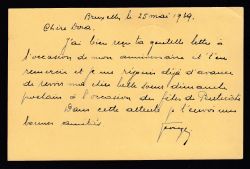 Bruxelles le 25 mai 1929.
Chère Dora.
J'ai bien reçu ta gentille lettre à
l'occasion de mon anniversaire et t'en
remercie et je me réjouis déjà d'avance
de revoir ma chère belle soeur dimanche
prochain à l'occasion des fêtes de Pentecôte
Dans cette attente je t'envoie mes
bonnes amitiés